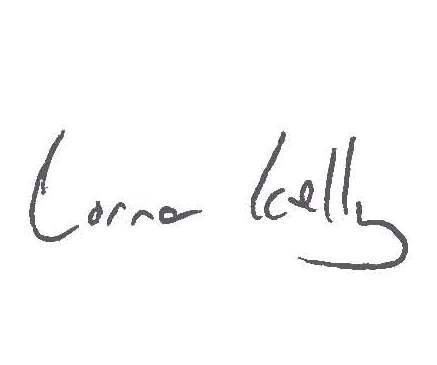 Lorna Kelly